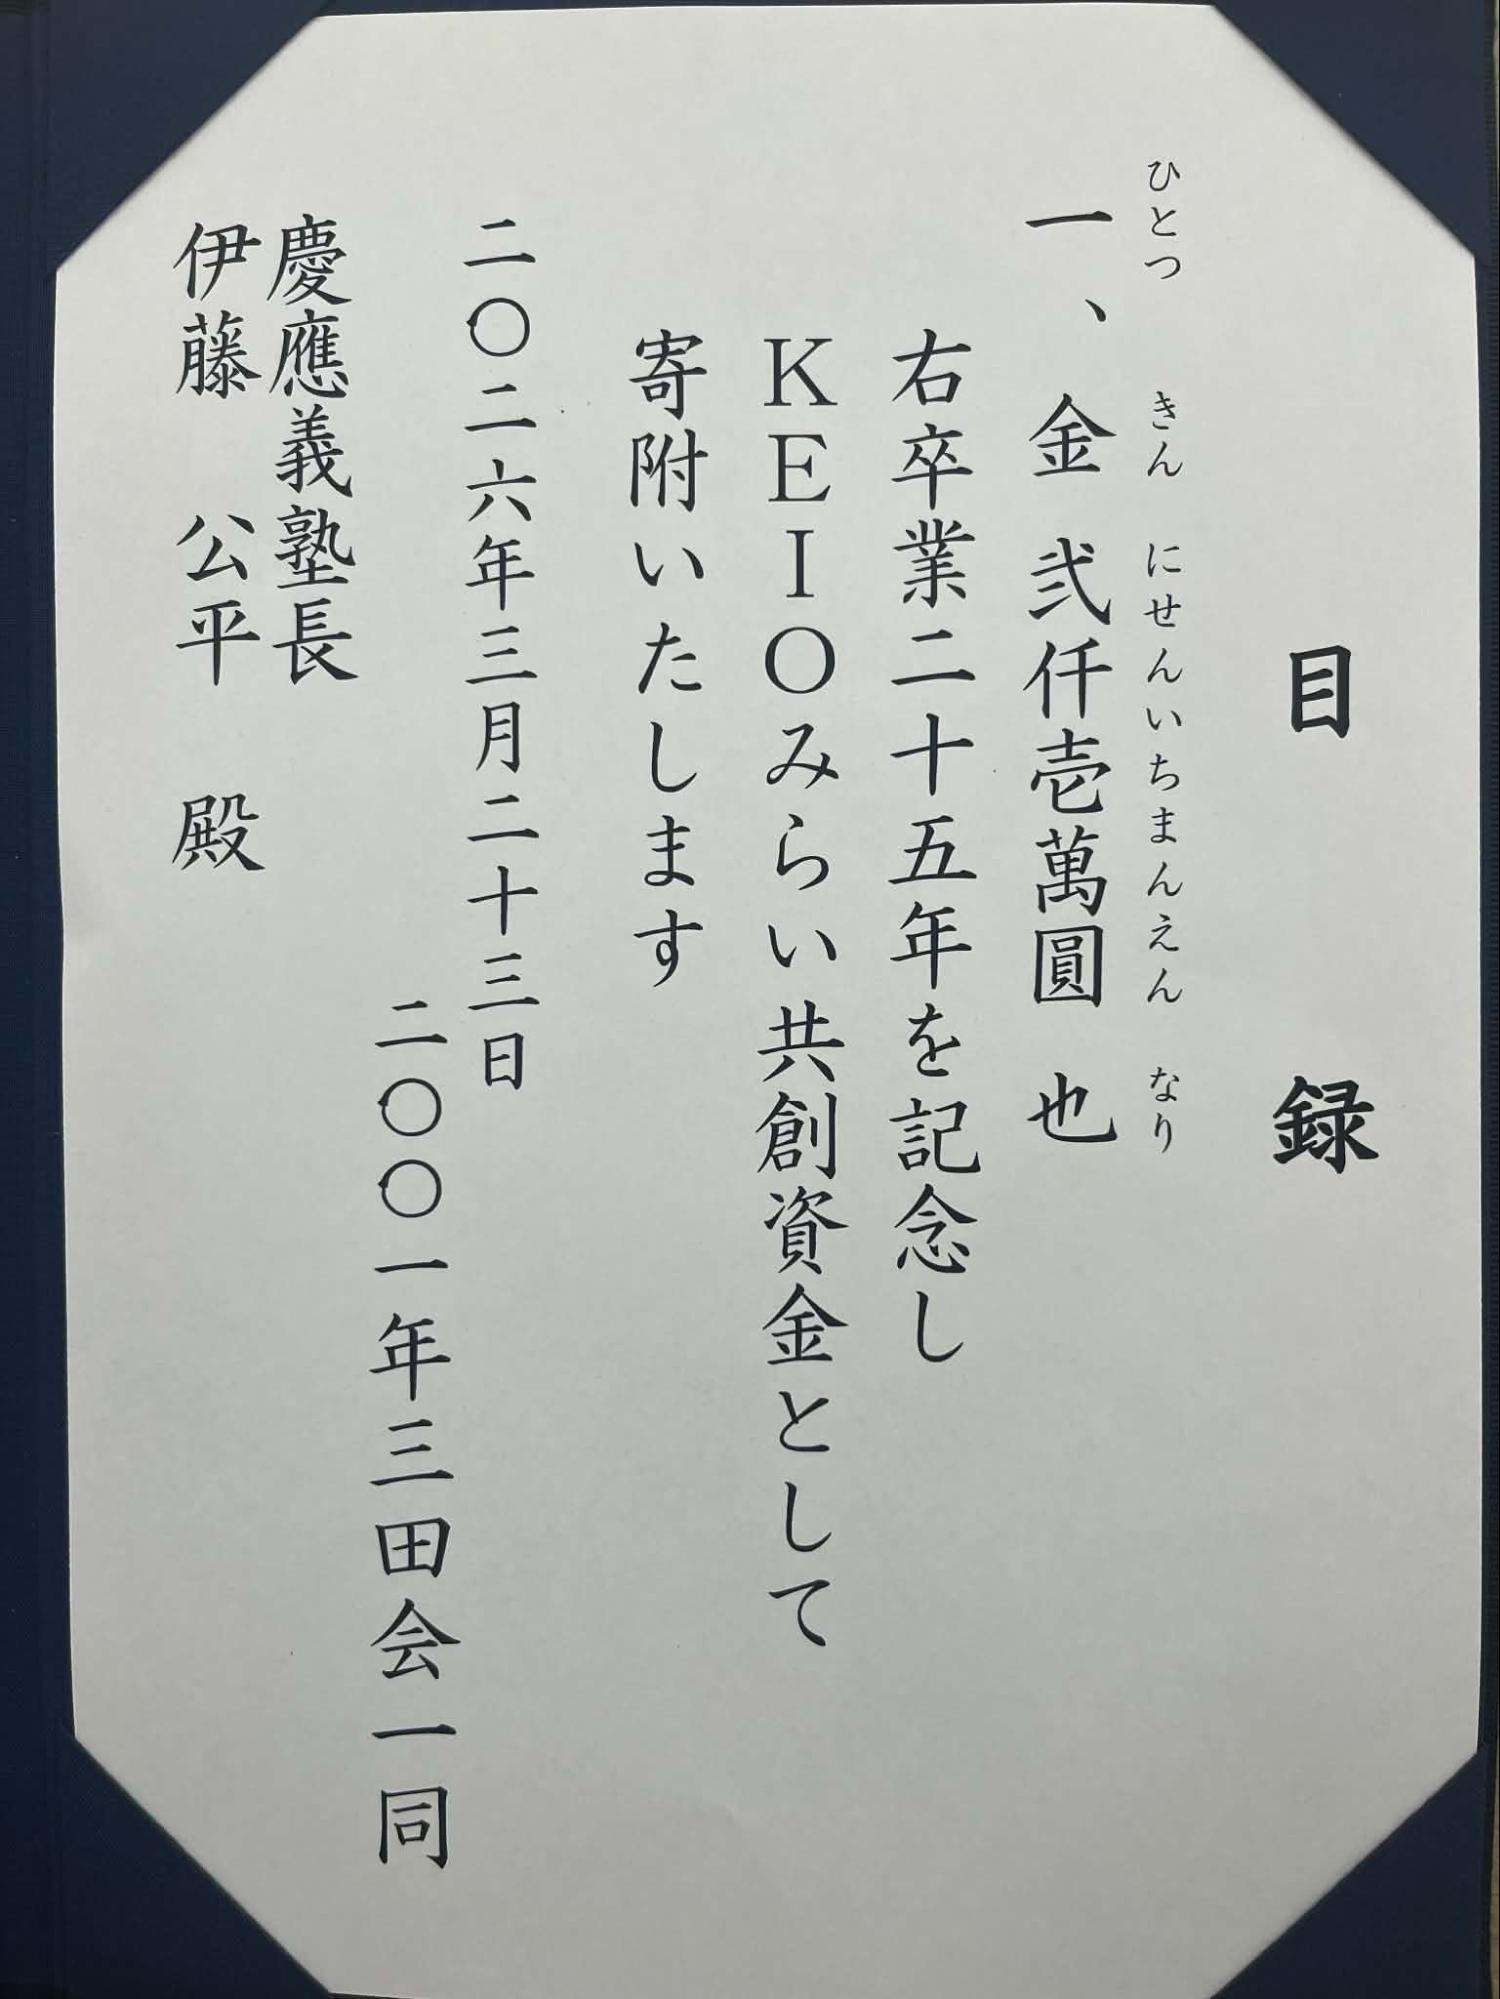 目録
ひとつ きん にせんいちまんえん なり
一、金 弐仟壱萬圓 也
右卒業二十五年を記念し
KEIOみらい共創資金として
寄附いたします
二〇二六年三月二十三日
二〇〇一年三田会一同
慶應義塾長
伊藤 公平 殿